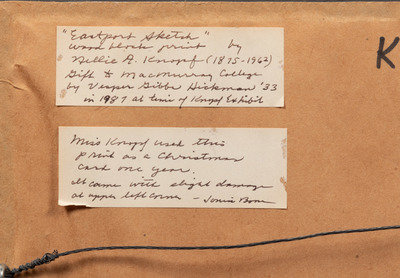 "Eastport Sketch"
wood block print by
Nellie A. Knopf (1875-1962)
Gift to MacMurray College
by Vesper Gibbs Hickman '33
in 1987 at time of Knopf Exhibit
Miss Knopf used this
print as a Christmas
card one year.
It came with slight damage
at upper left corner -
K